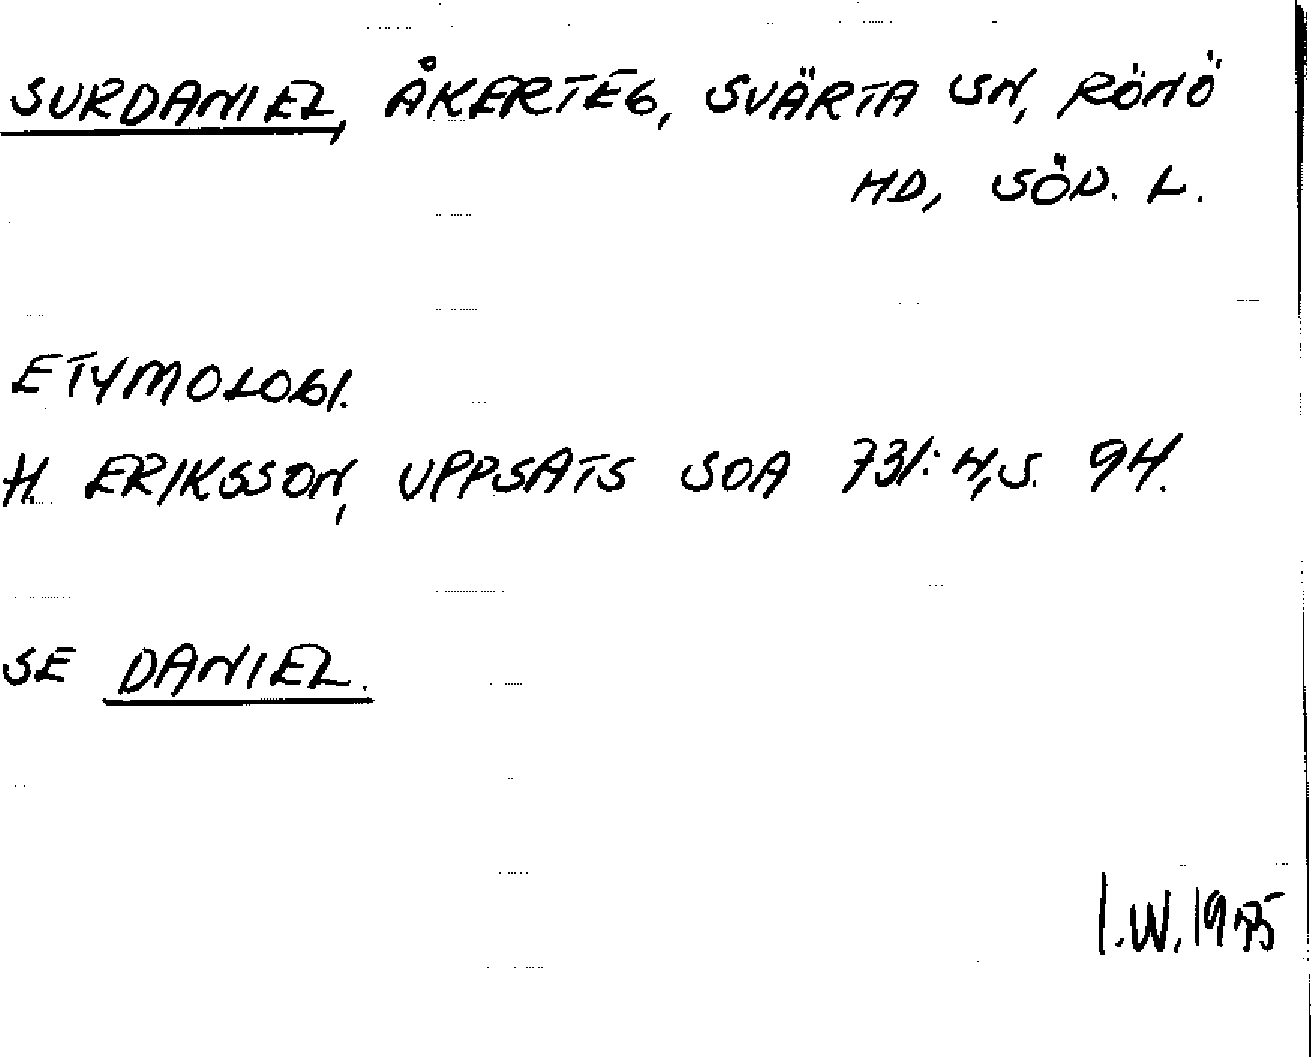 SURDANIEL, ÅKERTEG, SVÄRTA SN, RÖNÖ
HD, SÖD. L.
ETYMOLOGI.
H. ERIKSSON, UPPSATS SOA 731:4, S. 94.
SE DANIEL.
I.W. 1975